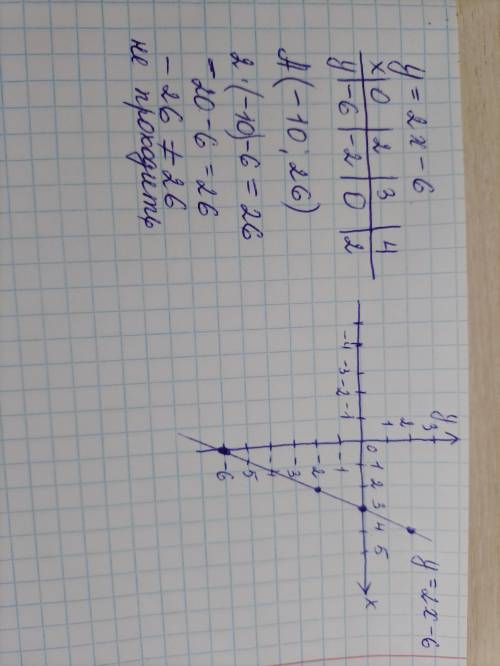 y = 2x - 6
x | 0 | 2 | 3 | 4
y | -6 | -2 | 0 | 2
A(-10; 26)
2·(-10)-6 = 26
= 20 - 6 = 26
- 26 ≠ 26
не проходить
y
3
2
1
-4 -3 -2 -1 0 1 2 3 4 5 x
-1
-2
-3
-4
-5
-6
y = 2x - 6